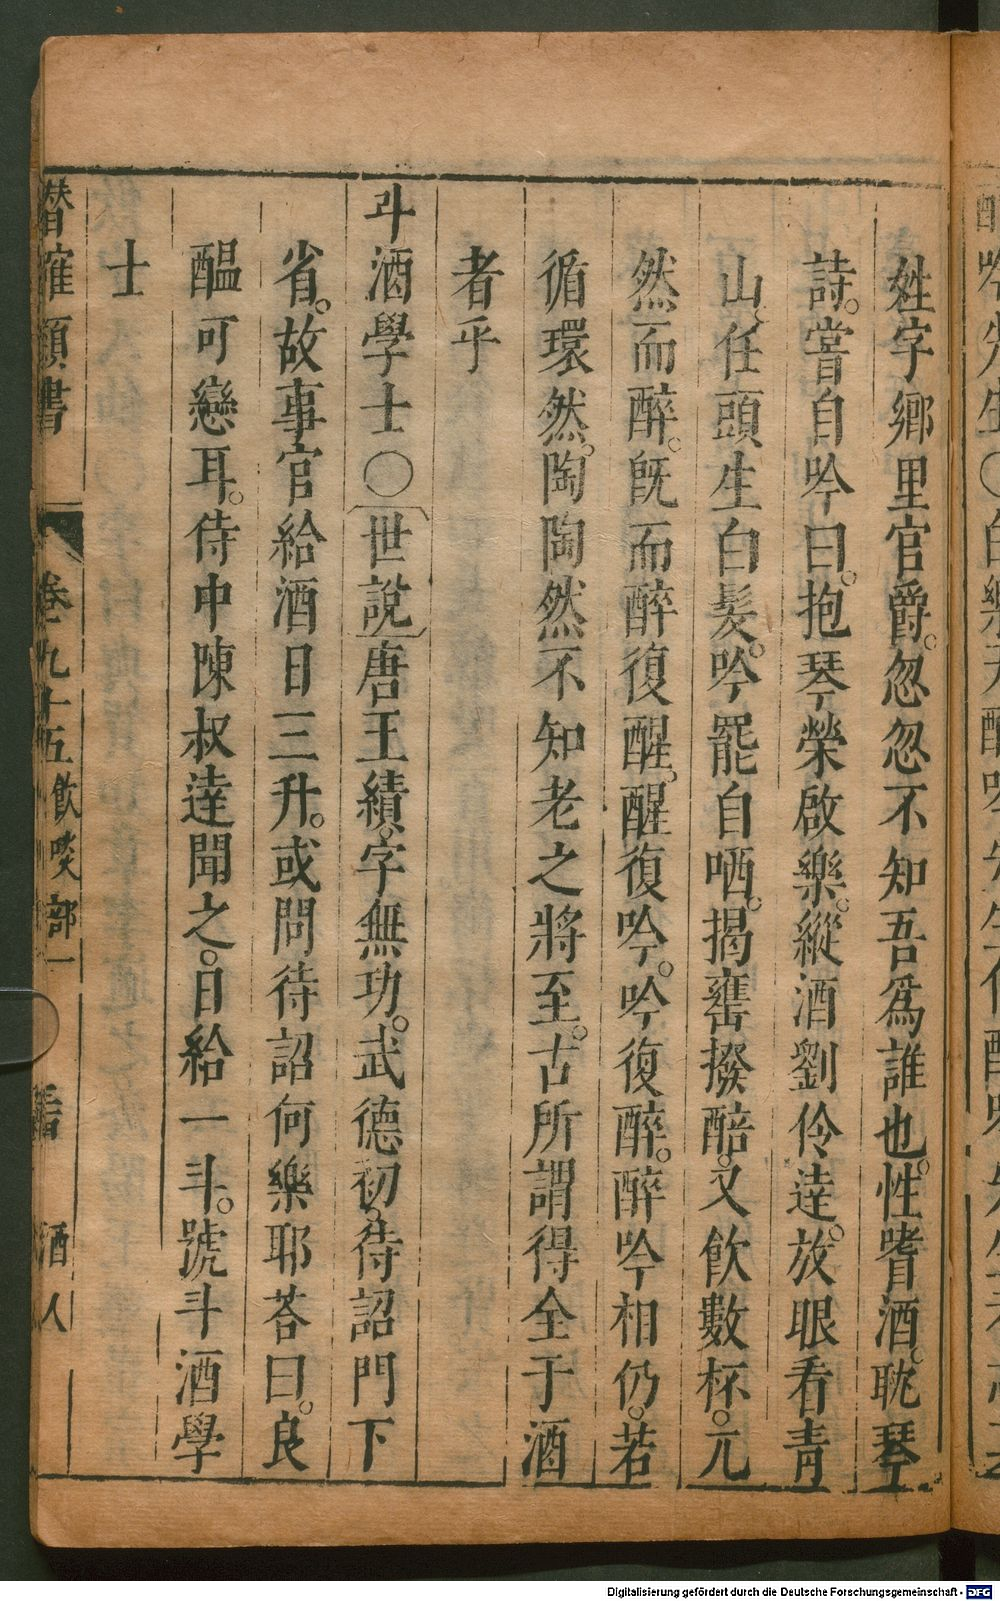 姓字鄉里官爵。忽忽不知吾爲誰也。性嗜酒。耽琴
詩。嘗自吟曰。抱琴榮啟樂。縱酒劉伶達。放眼看青
山、任頭生白髮。吟罷自哂。揭甕撥醅。又飲數杯。兀
然而醉。旣而醉復醒。醒復吟。吟復醉。醉吟相仍。若
循環然。陶陶然不知老之將至。古所謂得全于酒
者乎
斗酒學士〇[世說]唐王績。字無功。武德初。待詔門下
省。故事官給酒日三升。或問待詔何樂耶荅曰。良
醞可戀耳。侍中陳叔達聞之。日給一斗。號斗酒學
士
潛確類書 卷九十五 飲啖部一 酒人
Digitalisierung gefördert durch die Deutsche Forschungsgemeinschaft - DFG